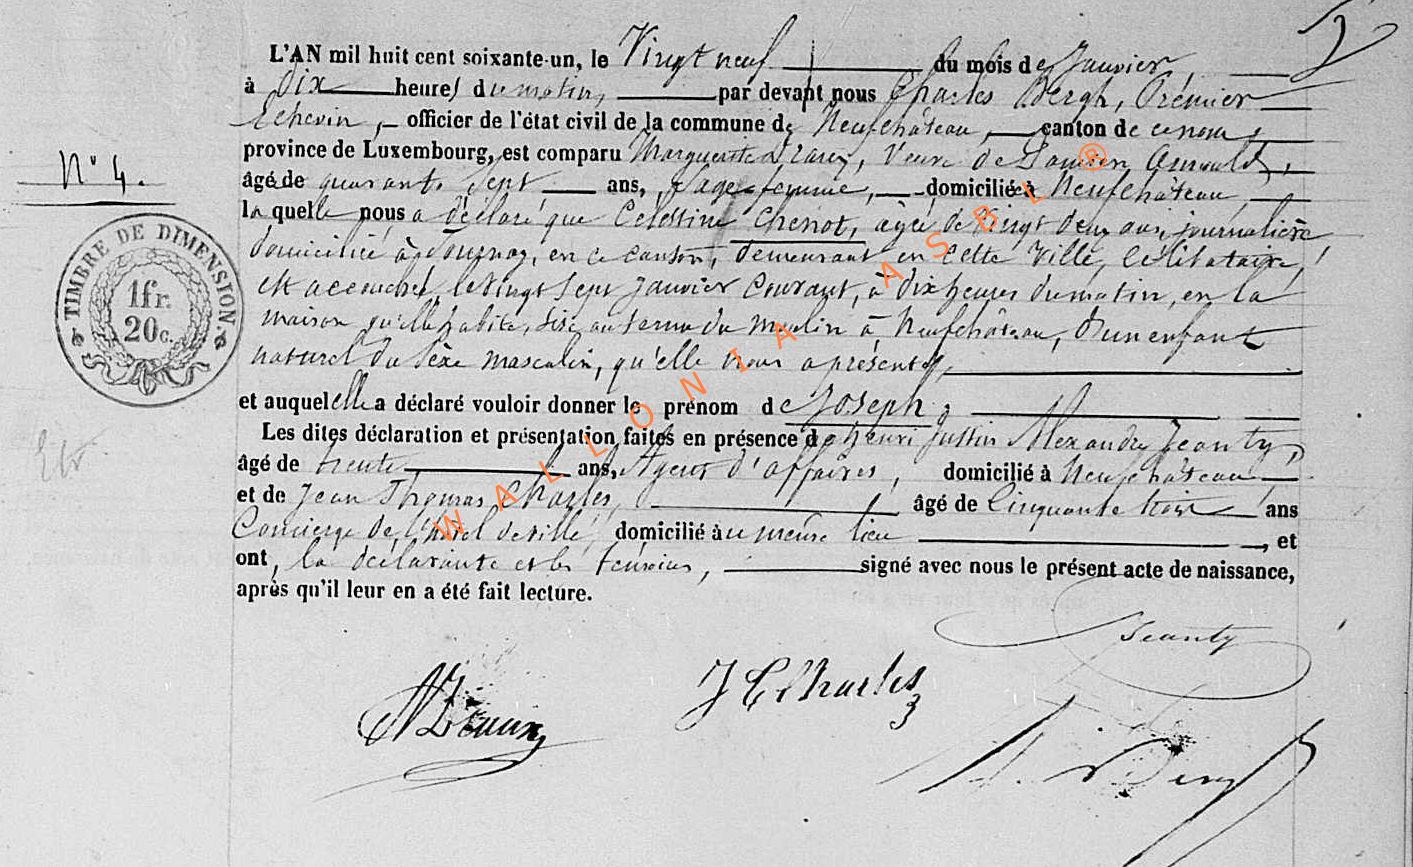 L'AN mil huit cent soixante-un, le Vingt neuf du mois de Janvier,
à Dix heures du matin, par devant nous Charles Bergh, Premier
Echevin, officier de l'état civil de la commune de Neufchâteau, canton de ce nom,
province de Luxembourg, est comparu Marguerite, Veuve de Arnould,
N° 4.
âgée de quarante Sept ans, Sage-femme, domiciliée à Neufchâteau,
la quelle nous a déclaré que Célestine Chenot, âgée de Vingt deux ans, journalière,
domiciliée à Tournay, en ce canton, demeurant en cette Ville, Célibataire,
est accouchée, le Vingt Sept Janvier Courant, à dix heures du matin, en la
maison qu'elle habite, Sise au du Moulin à Neufchâteau, D'un enfant
naturel du Sèxe masculin, qu'elle nous a présenté,
et auquel elle a déclaré vouloir donner le prénom de Joseph,
Les dites déclaration et présentation faites en présence de henri Justin Alexandre Jeanty,
âgé de trente ans, Agent d'affaires, domicilié à Neufchâteau
et de Jean Thomas Charles, âgé de Cinquante trois ans
Concierge de l'hôtel de ville, domicilié au même lieu, et
ont, la déclarante et les témoins, signé avec nous le présent acte de naissance,
après qu'il leur en a été fait lecture.
TIMBRE DE DIMENSION.
1 fr.
20 c.
Jeanty
J T Charles
WALLONIA ASBL ®